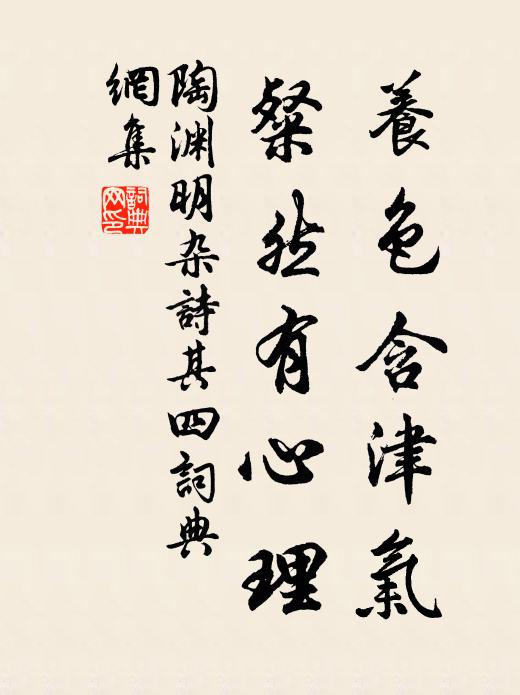 養色含津氣
粲然有心理
陶渊明杂詩其四詞典
網集
詞典网印